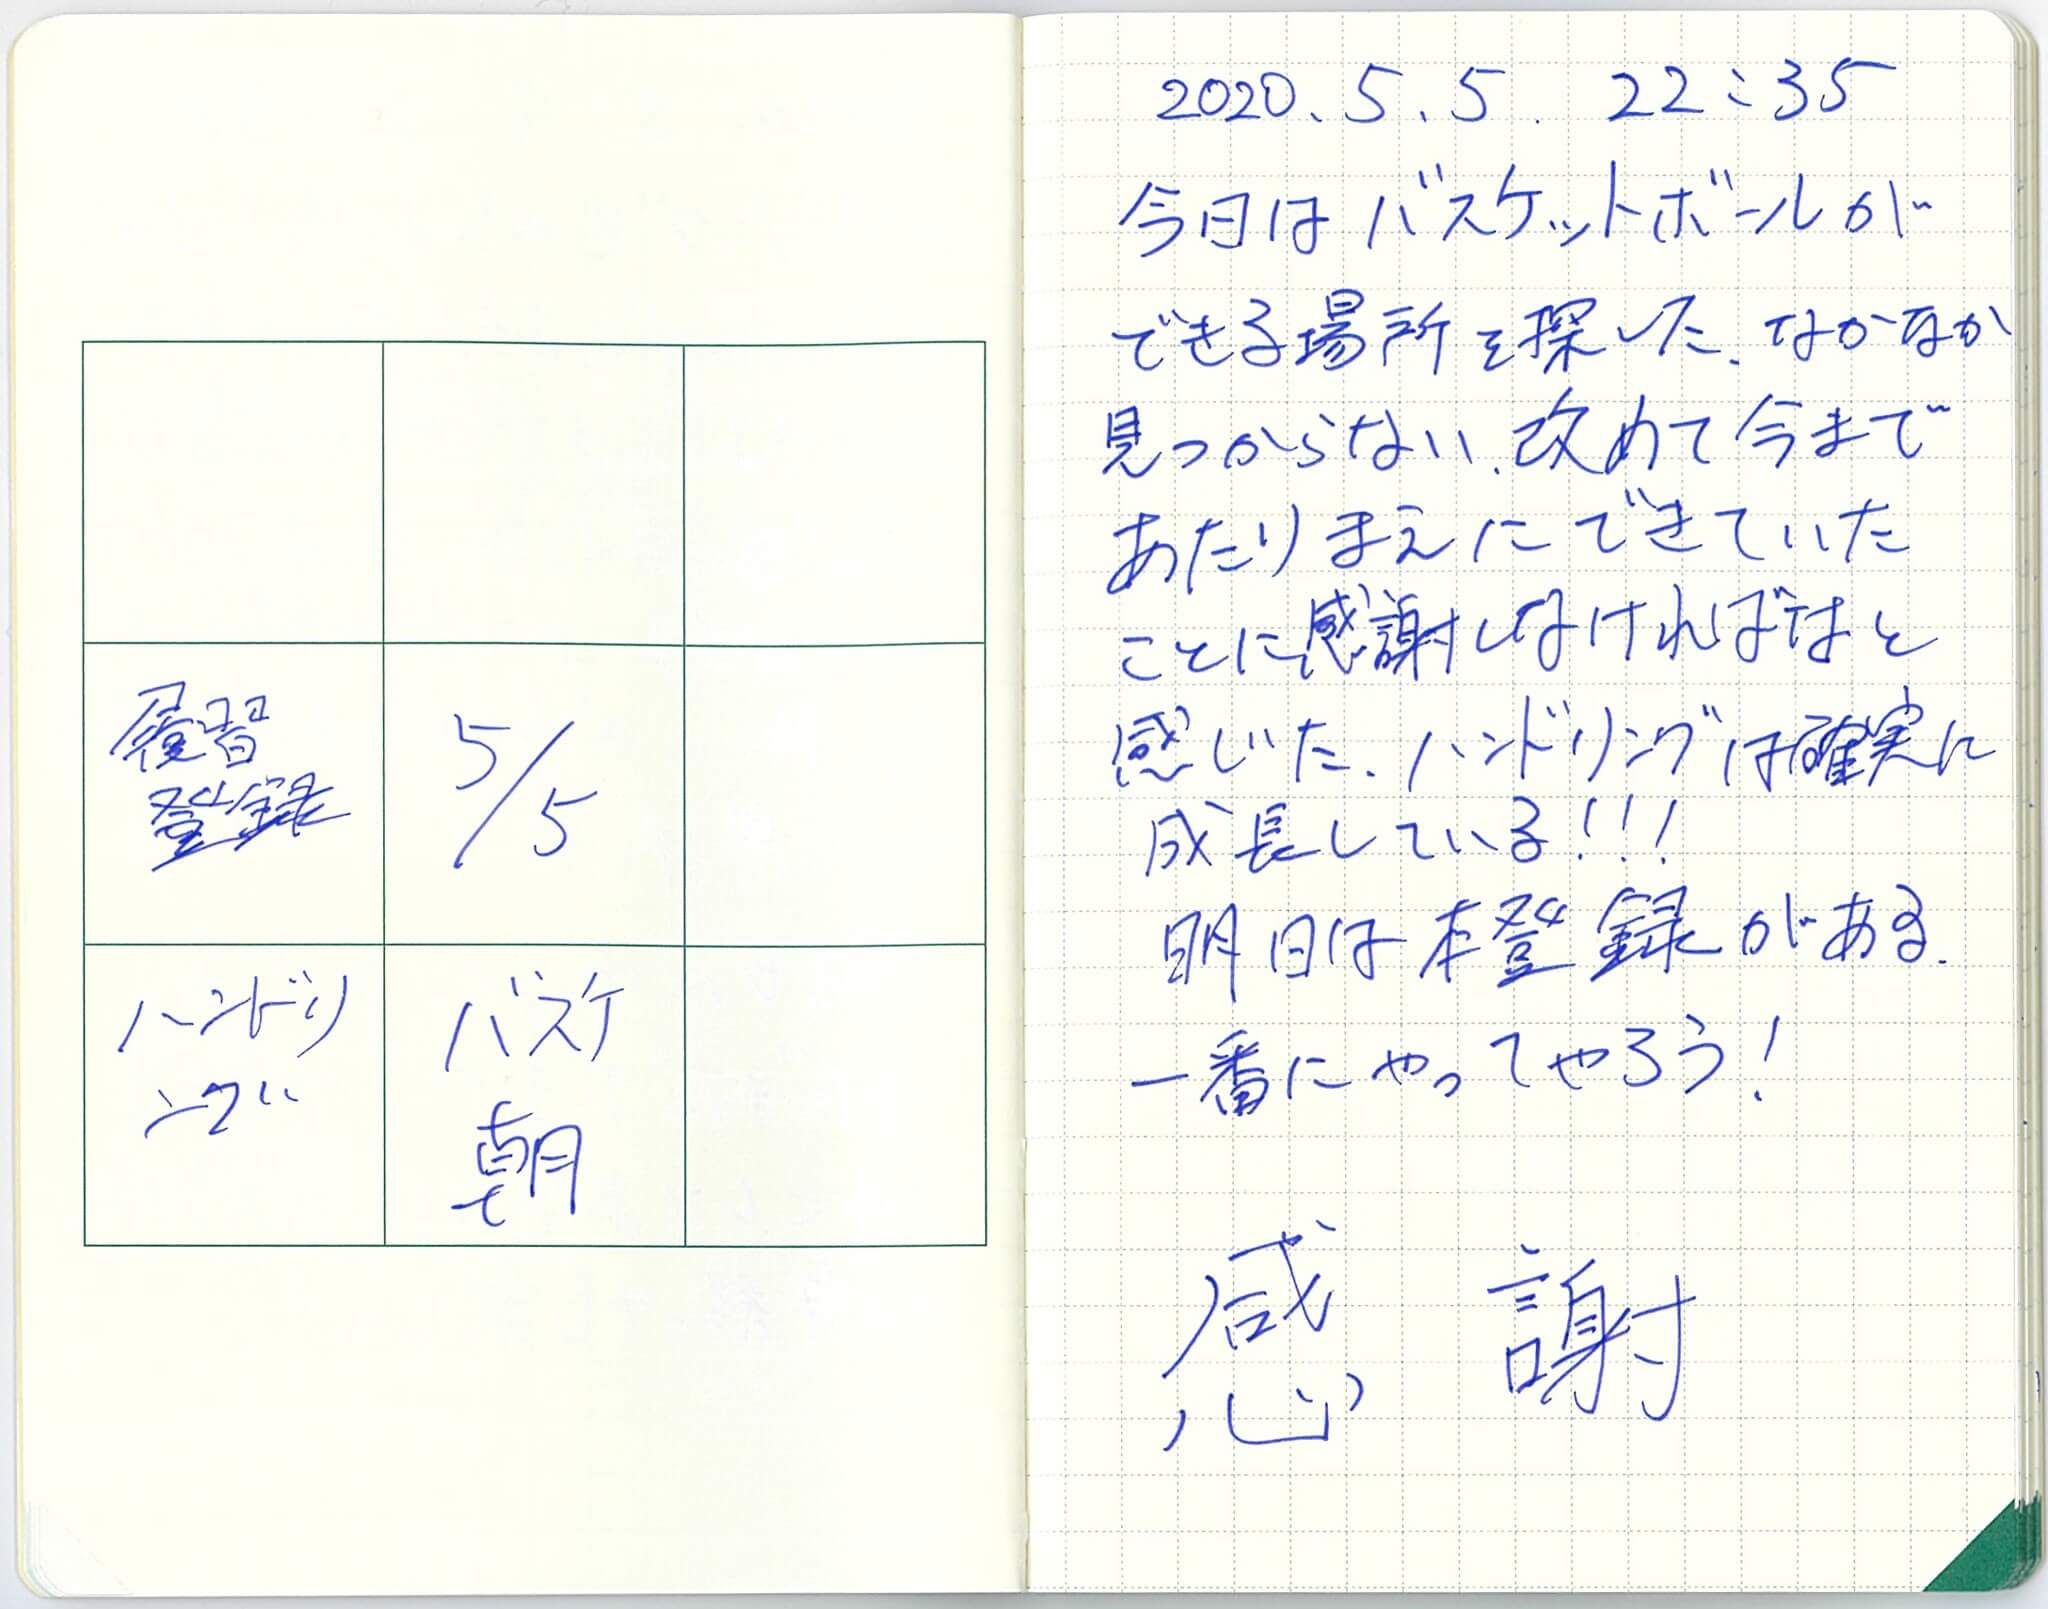 履習
登録
5/5
ハンドリ
ング
バスケ
朝
2020.5.5. 22:35
今日はバスケットボールが
できる場所を探した.なかなか
見つからない.改めて今まで
あたりまえにできていた
ことに感謝しなければと
感じた.ハンドリングは確実に
成長している!!!
明日は本登録がある.
一番にやってやろう!
感謝